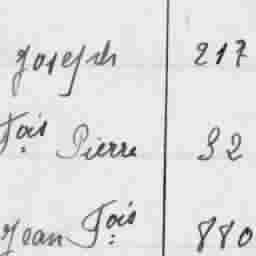 Joseph 217
Fois Pierre 32
Jean Fois 880